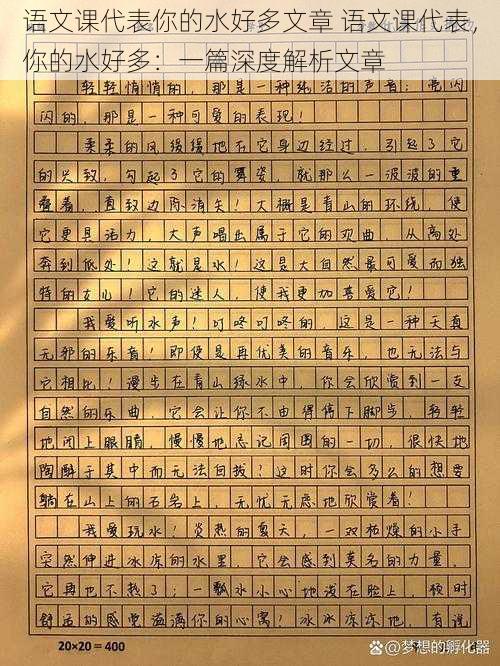 语文课代表你的水好多文章 语文课代表,
你的水好多：一篇深度解析文章
轻轻悄悄的，那是一种纯洁的声音；亮闪
闪的，那是一种可爱的表现！
柔柔的风缓缓地在它身边经过，引起了它
的兴致，勾起了它的舞姿，就那么一波波的重
叠着，直致边际消失！大概是青山的环绕，使
它更具活力，大声唱出属于它的欢曲，从高处
奔到低处！这就是水！这是大自然最可爱而独
特的女儿！它的迷人，使我更加喜爱它！
我爱听水声！叮咚叮咚的，这是一种天真
无邪的乐音！即使是再优美的音乐，也无法与
它相比！漫步在青山绿水中，你会欣赏到一支
自然的乐曲，它会让你不由得停下脚步，轻轻
地闭上眼睛，慢慢地忘记周围的一切，很快地
陶醉于其中而无法回拔！这时你会多么的想要
躺在山上的石岩上，无忧无虑地欣赏着！
我爱玩水！炎热的夏天，一双枯燥的小手
突然伸进冰冻的水里，它会感到莫名的力量，
它再也不热了；一瓢水小心地泼在脸上，顿时
舒适的感觉溢满你的心窝！冰冰冻冻地，有说
20×20=400
@梦想的孵化器